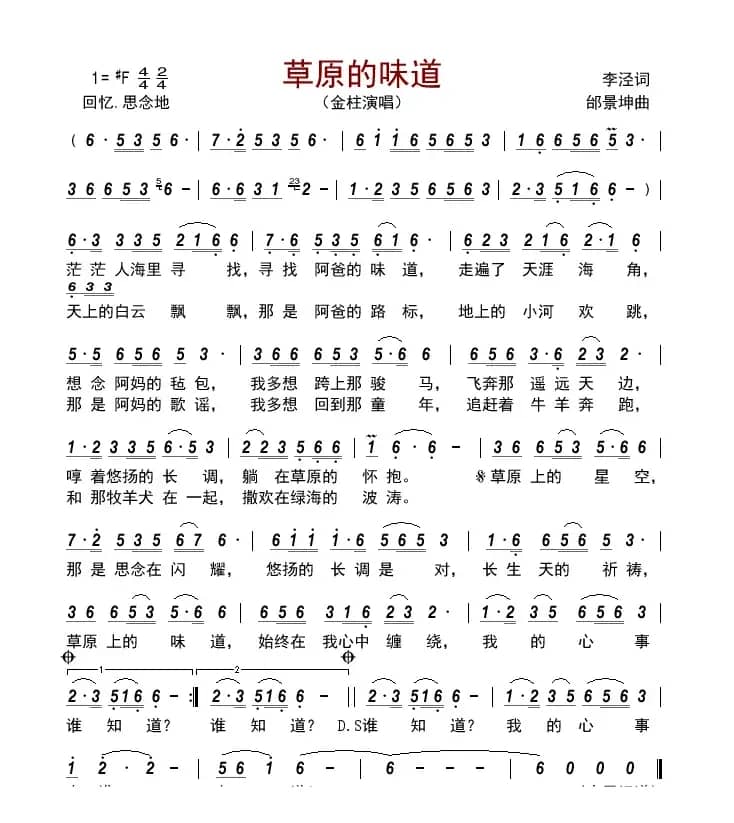 草原的味道
1=♯F 4/4 2/4
李泾词
回忆.思念地
（金柱演唱）
邰景坤曲
(6·535 6· | 7·2535 6· | 6116 5653 | 16656 53 |
36653 56- | 6·631 232- | 1·235 6563 | 2·3516 6- )
6·3 335 2166 | 7·6 535 616· | 623 216 2·16 |
茫茫人海里寻 找，寻找 阿爸的味 道， 走遍了 天涯 海 角，
6 3 3
天上的白云 飘 飘，那是 阿爸的路 标， 地上的 小河 欢 跳，
5·5 656 53· | 366 653 5·66· | 656 3·6 232· |
想念 阿妈的毡 包， 我多想 跨上那骏 马， 飞奔那 遥远 天 边，
那是 阿妈的歌 谣，我多想 回到那童 年， 追赶着 牛羊 奔 跑，
1·2335 6·53 | 2235 66 | 1 6·6- | 36 653 5·66· |
啍 着悠扬的 长 调， 躺 在草原的 怀 抱。 草原 上的 星 空，
和 那牧羊犬 在 一起， 撒欢在绿海的 波 涛。
7·2 535 67 6· | 611 1·6 565 3 | 1·6 535 656· |
那是 思念在 闪 耀， 悠扬的 长调是 对， 长生 天的 祈祷，
36 653 5·66· | 656 316 232· | 1·2 35 6563 |
草原 上的 味 道， 始终在 我心中 缠 绕， 我 的 心 事
1 2
2·3 5166- :|| 2·3 5166- || 2·3 5166- | 1·235 6563 |
谁 知道？ 谁 知道？ D.S谁 知 道？ 我 的 心 事
1 2·2- | 561 6- | 6--- | 6000 ||